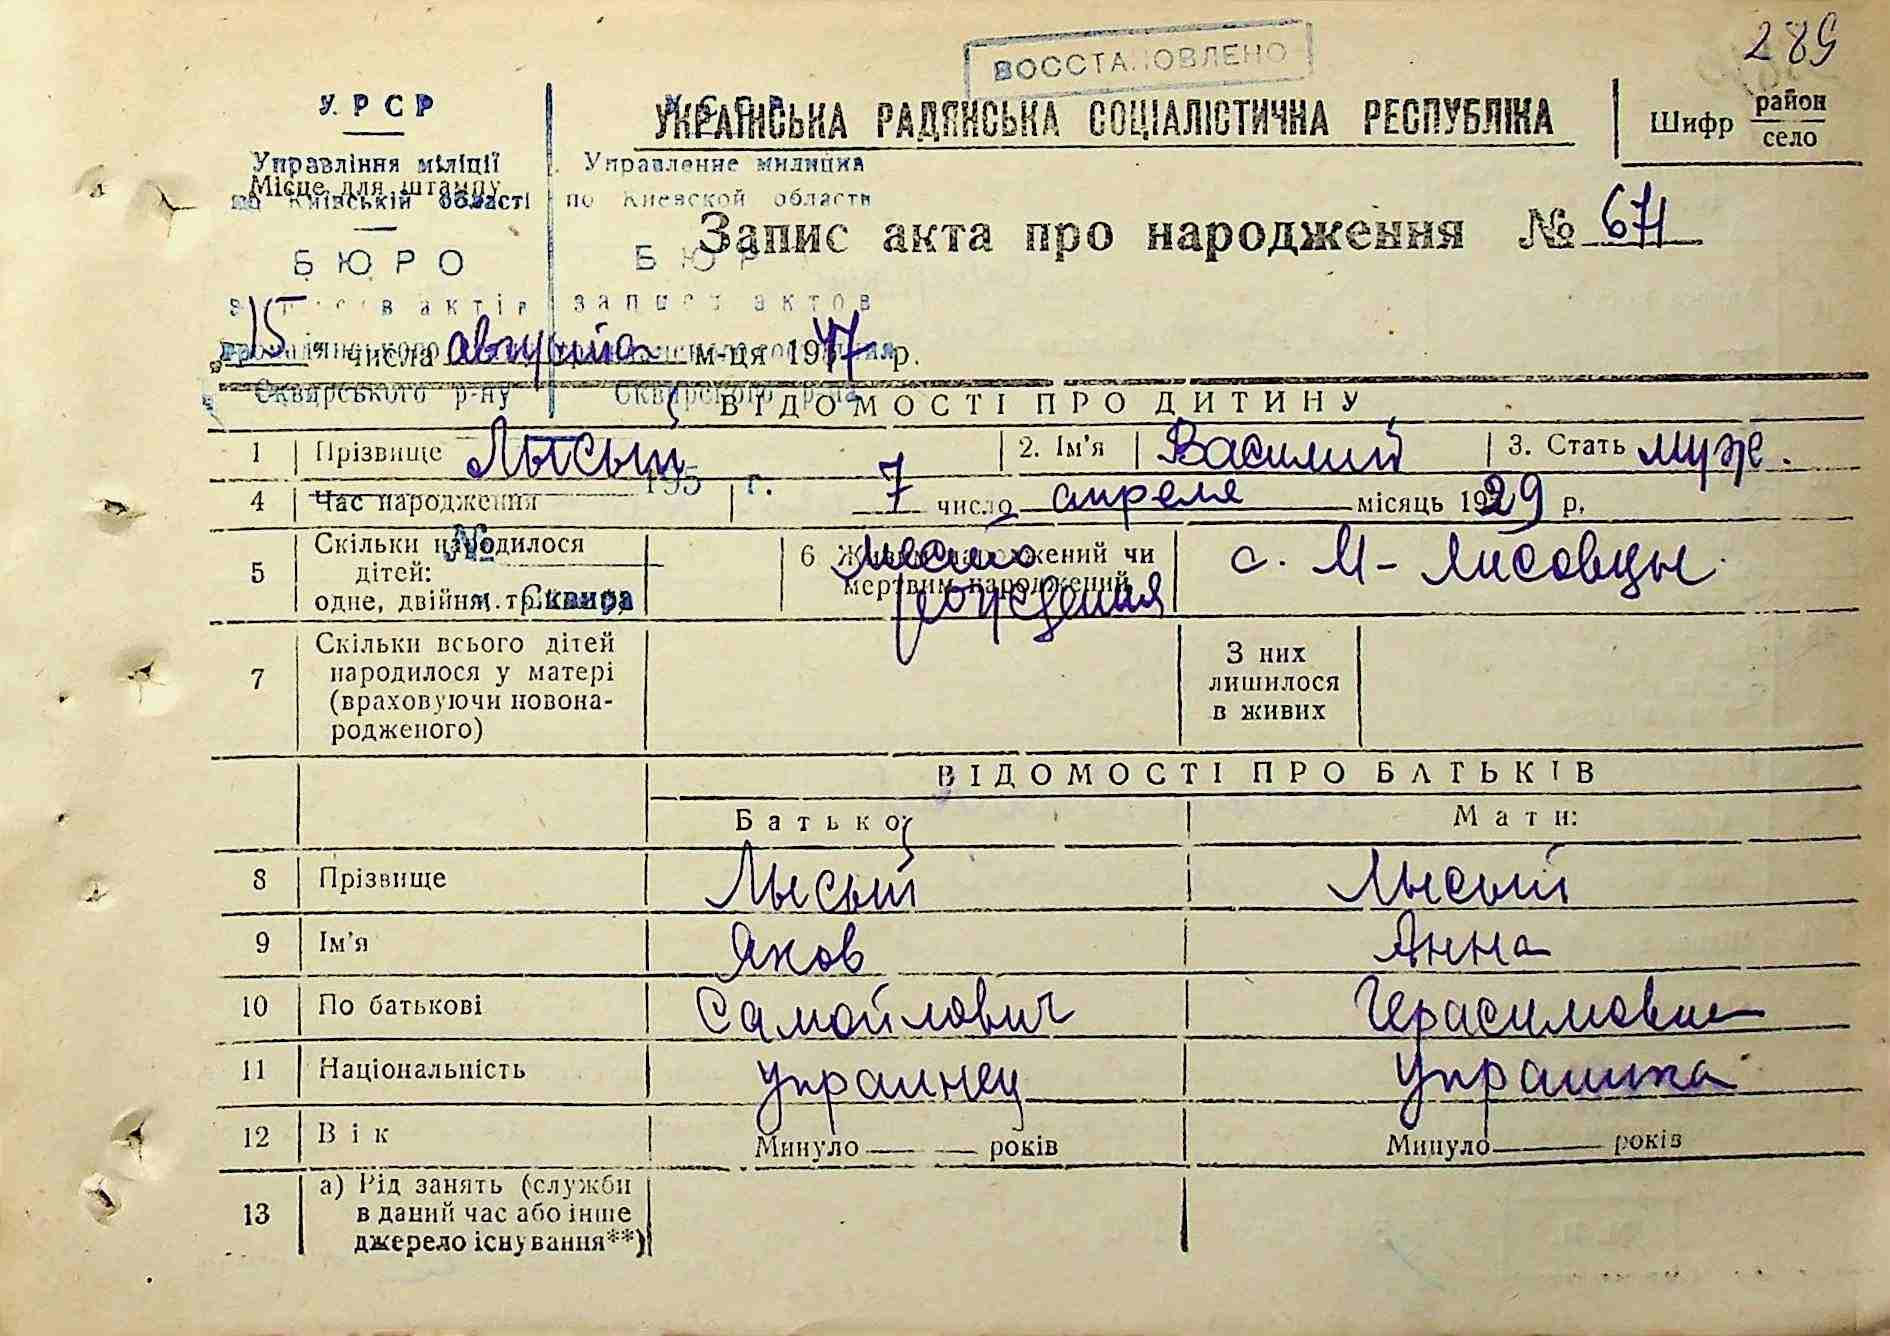 289
ВОССТАНОВЛЕНО
УРСР
УКРАЇНСЬКА РАДЯНСЬКА СОЦІАЛІСТИЧНА РЕСПУБЛІКА
Шифр район
село
Управління міліції
Управление милиции
Місце для штампу
по Київській області
по Киевской области
Запис акта про народження № 671
БЮРО
БЮР
записи актов
„15" числа августа м-ця 1947 р.
Сквирського р-ну
Сквирского р-на
ВІДОМОСТІ ПРО ДИТИНУ
1 Прізвище Лысый 2. Ім'я Василий 3. Стать муж.
195 г.
4 Час народження 7 число апреля місяць 1929 р.
5 Скільки народилося
дітей:
одне, двійня,
№
м. Сквира
6 Живим народжений чи
мертвим народжений
место
рождения
с. М-Лисовцы.
7 Скільки всього дітей
народилося у матері
(враховуючи новона-
родженого)
З них
лишилося
в живих
ВІДОМОСТІ ПРО БАТЬКІВ
Батько: Мати:
8 Прізвище Лысый Лысый
9 Ім'я Яков Анна
10 По батькові Самойлович Герасимовна
11 Національність украинец украинка
12 Вік Минуло років Минуло років
13 а) Рід занять (служби
в даний час або інше
джерело існування**)